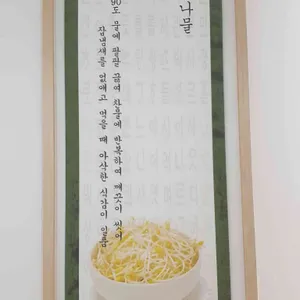 나물
90도 물에 팔팔 끓여 찬물에 반복하여 깨끗이 씻어
잡냄새를 없애고 먹을 때 아삭한 식감이 일품